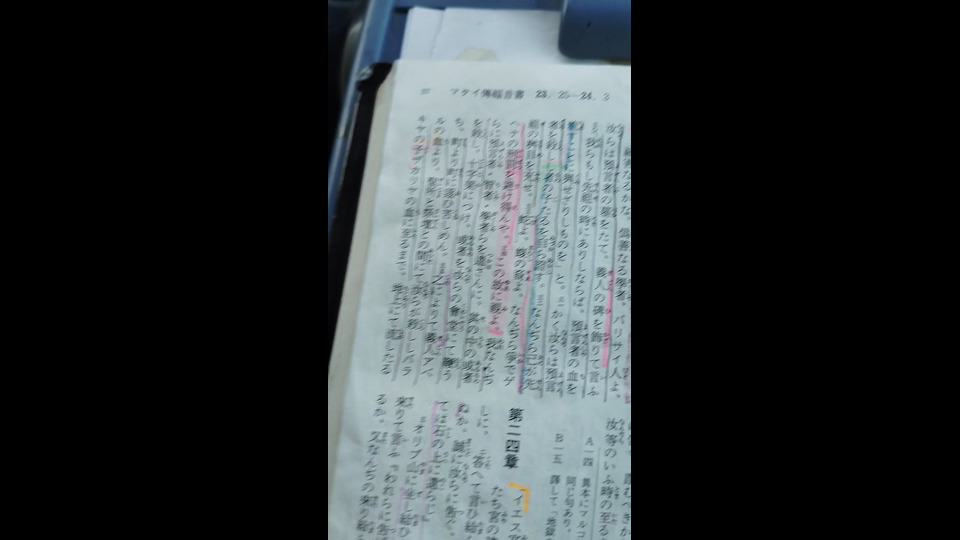 マタイ傳福音書 23.25―24.3
禍害なるかな、偽善なる學者、パリサイ人よ、
汝らは預言者の墓をたて、義人の碑を飾りて言ふ
我らもし先祖の時にありしならば、預言者の血を
流すことに與せざりしものを」と。かく汝らは預言
者を殺しし者の子たるを自ら證す。なんぢら己が先
祖の桝目を充せ。蛇よ、蝮の裔よ、なんぢら爭でゲ
ヘナの刑罰を避け得んや。この故に視よ、我なんぢ
らに預言者・智者・學者らを遣さんに、其の中の或者
を殺し、十字架につけ、或者を汝らの會堂にて鞭う
ち、町より町に逐ひ苦しめん。之によりて義人アベ
ルの血より、聖所と祭壇との間にて汝らが殺ししバラ
キヤの子ザカリヤの血に至るまで、地上にて流したる
汝等のいふ時の至る
A 一四 異本にマルコ
同じ句あり。
B 一五 譯して「地獄
第二四章
イエス宮
たち宮の
しに、答へて言ひ給
ぬか。誠に汝らに告ぐ、
ては石の上に遺らじ
オリブ山に坐し給ひ
來りて言ふ『われらに告
るか。又なんぢの來り給